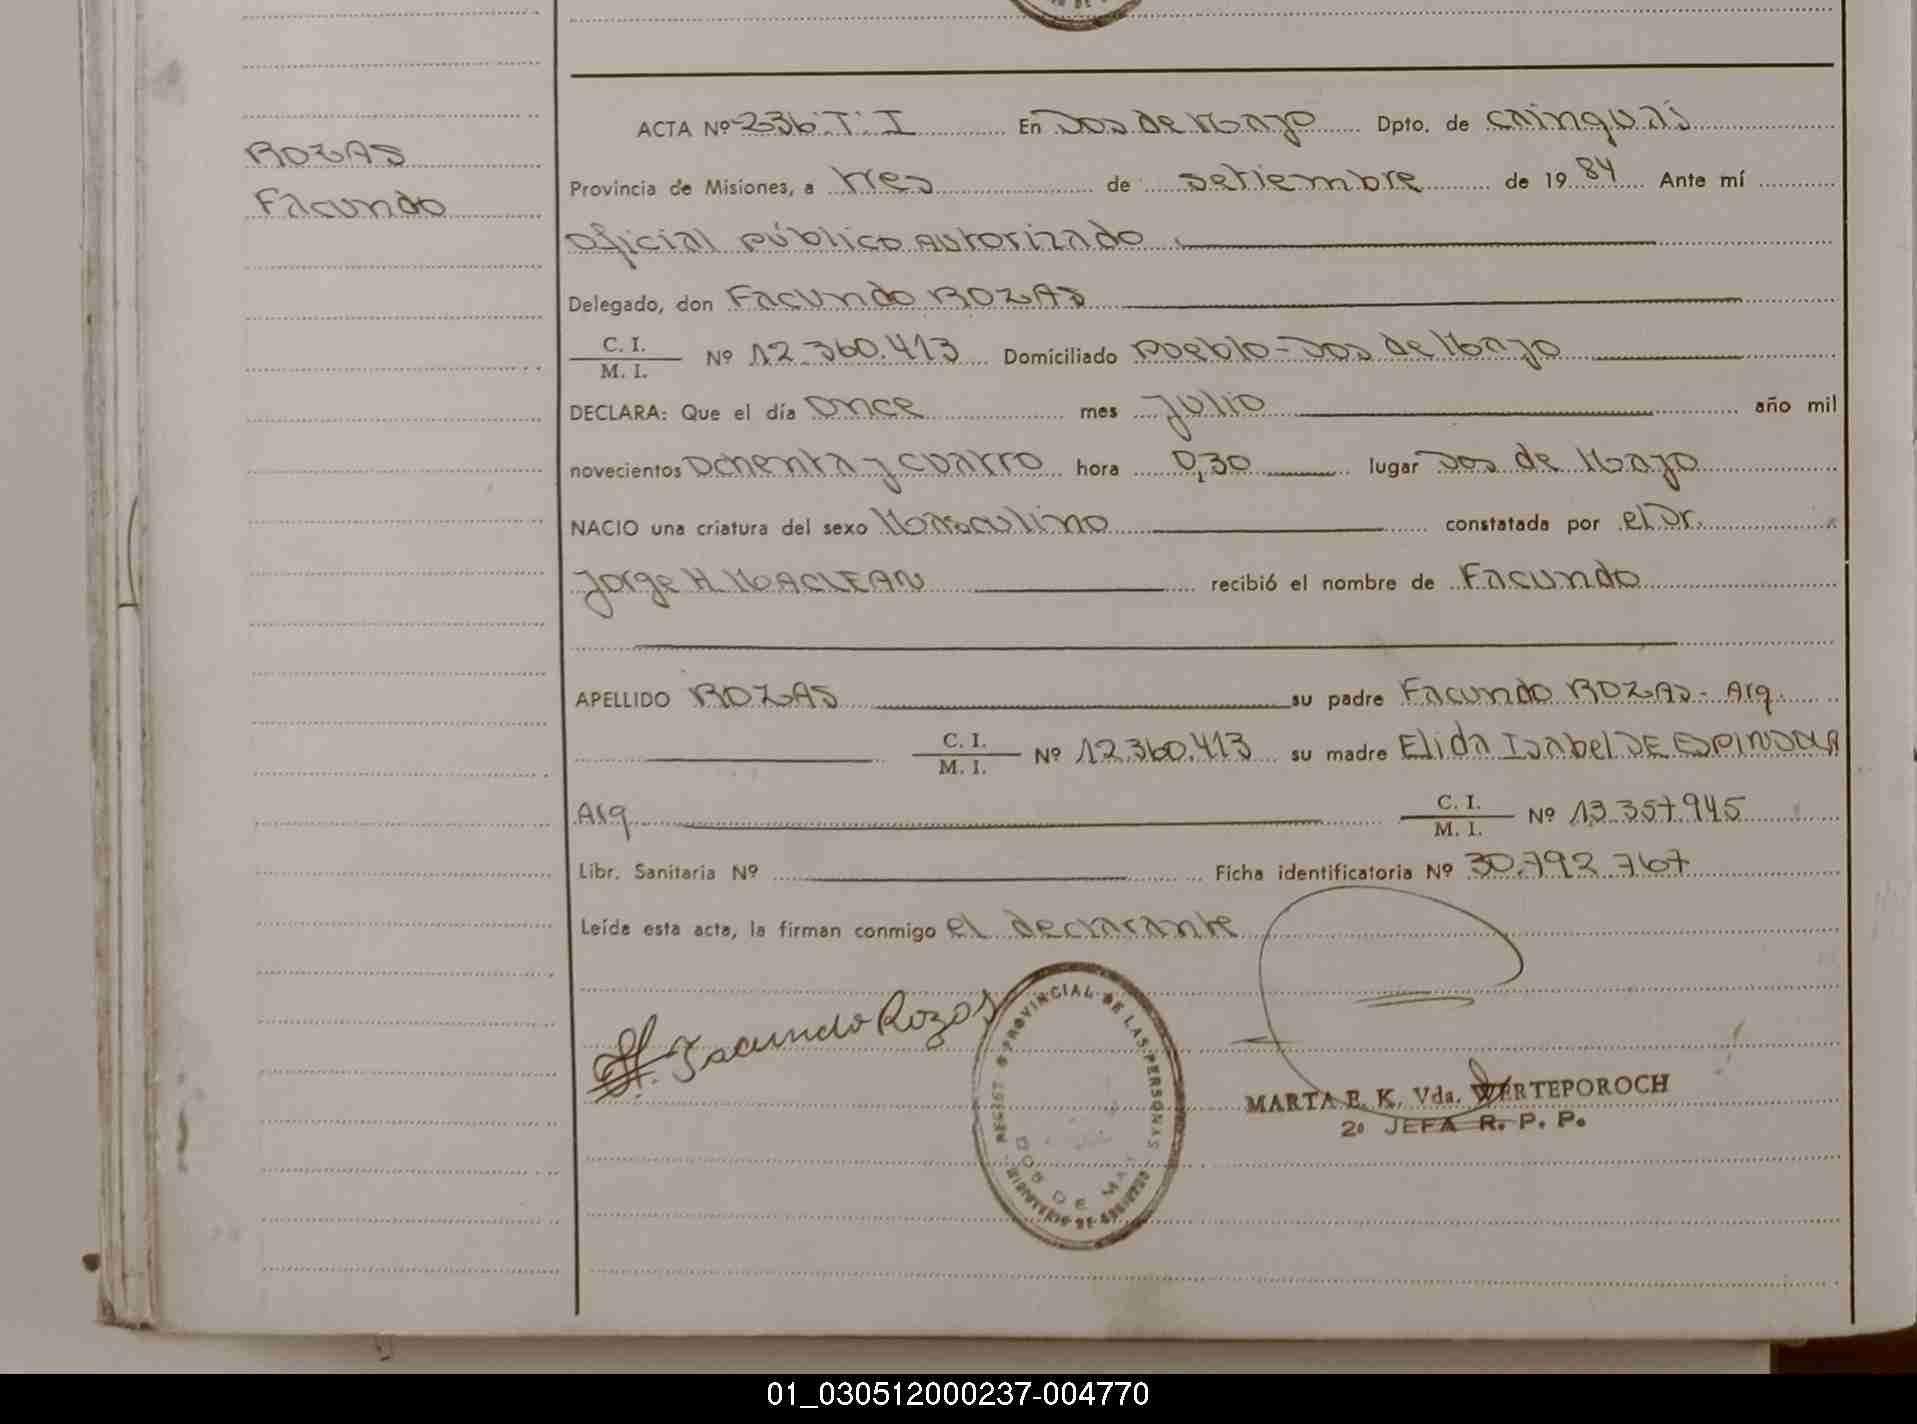 ACTA Nº 236. T. I En Dos de Mayo Dpto. de Cainguas
ROZAS
Provincia de Misiones, a tres de setiembre de 1984 Ante mí
Facundo
Oficial público Autorizado
Delegado, don Facundo ROZAS
C. I.
M. I. Nº 12.360.413 Domiciliado Pueblo-Dos de Mayo
DECLARA: Que el día Once mes Julio año mil
novecientos Ochenta y cuatro hora 0,30 lugar Dos de Mayo
NACIO una criatura del sexo Masculino constatada por el Dr.
Jorge H. MACLEAN recibió el nombre de Facundo
APELLIDO ROZAS su padre Facundo ROZAS- Arg.
C. I.
M. I. Nº 12.360.413 su madre Elida Isabel DE ESPINDOLA
Arg
C. I.
M. I. Nº 13.357.945
Libr. Sanitaria Nº Ficha identificatoria Nº 30.792.767
Leída esta acta, la firman conmigo el declarante
Facundo Rozas
PROVINCIAL DE LAS PERSONAS
DOS DE MAY
MARTA E. K. Vda. WERTEPOROCH
2º JEFA R. P. P.
01_030512000237-004770